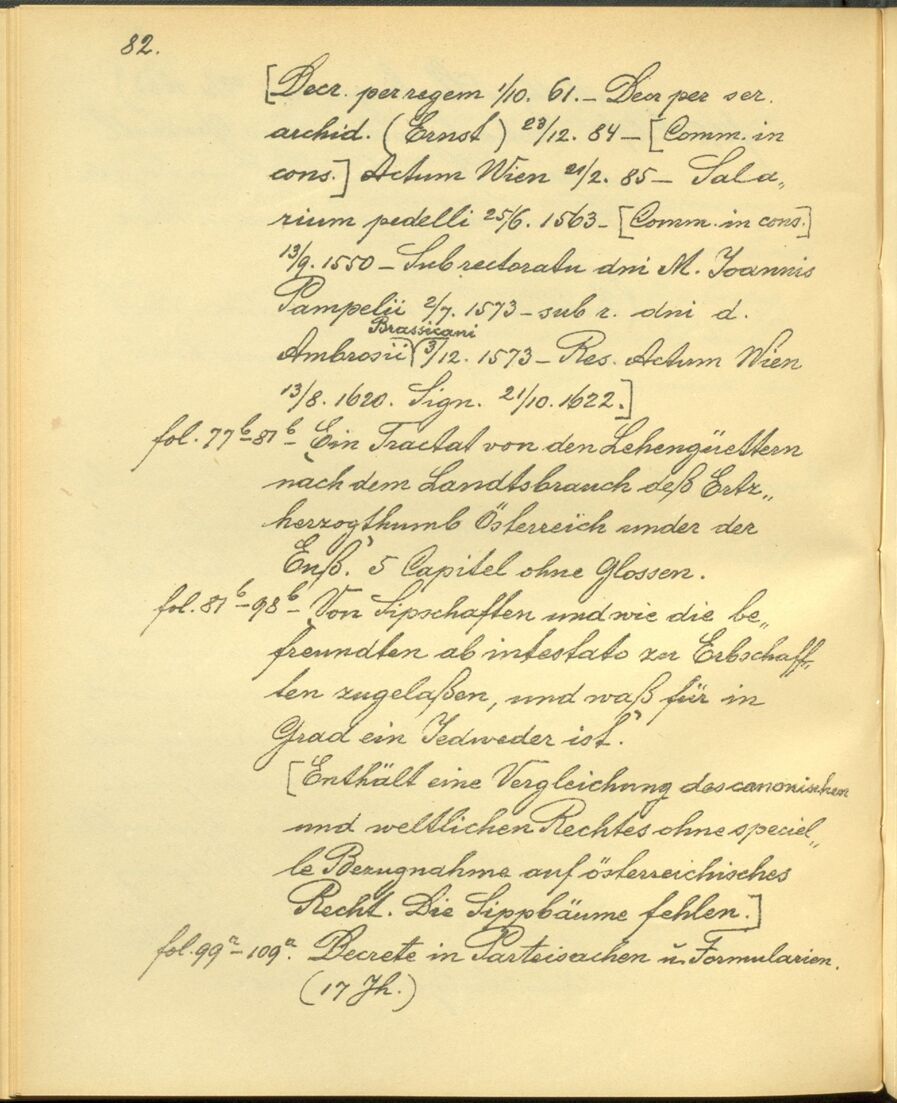 82.
[Decr. per regem 1/10. 61. – Decr per ser.
archid. (Ernst) 23/12. 84 – [Comm. in
cons.] Actum Wien 21/2. 85 – Sala„
rium pedelli 25/6. 1563 – [Comm. in cons.]
13/9. 1550 – Sub rectoratu dni M. Joannis
Pampelii 2/7. 1573 – sub r. dni d.
Brassicani
Ambrosii 3/12. 1573 – Res. Actum Wien
13/8. 1620. Sign. 21/10. 1622.]
fol. 77b–81b – Ein Tractat von den Lehengüettern
nach dem Landtsbrauch deß Ertz„
herzogthumb Österreich under der
Enß." 5 Capitel ohne Glossen.
fol. 81b–98b – Von Sipschaften und wie die be„
freundten ab intestato zu Erbschaff„
ten zugelaßen, und waß für in
Grad ein Jedweder ist."
[Enthält eine Vergleichung des canonischen
und weltlichen Rechtes ohne speciel„
le Bezugnahme auf österreichisches
Recht. Die Sippbäume fehlen.]
fol. 99a–109a. Decrete in Parteisachen u. Formularien.
(17 Jh.)